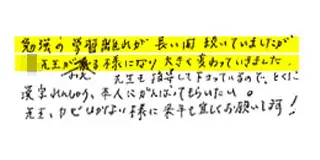 勉強の学習離れが長い間続いていましたが
先生が来る様になり大きく変わっていきました。
先生も指導して下さっているので、とくに
漢字れんしゅう、本人にがんばってもらいたい。
先生、カゼひかない様に来年も宜しくお願いします!